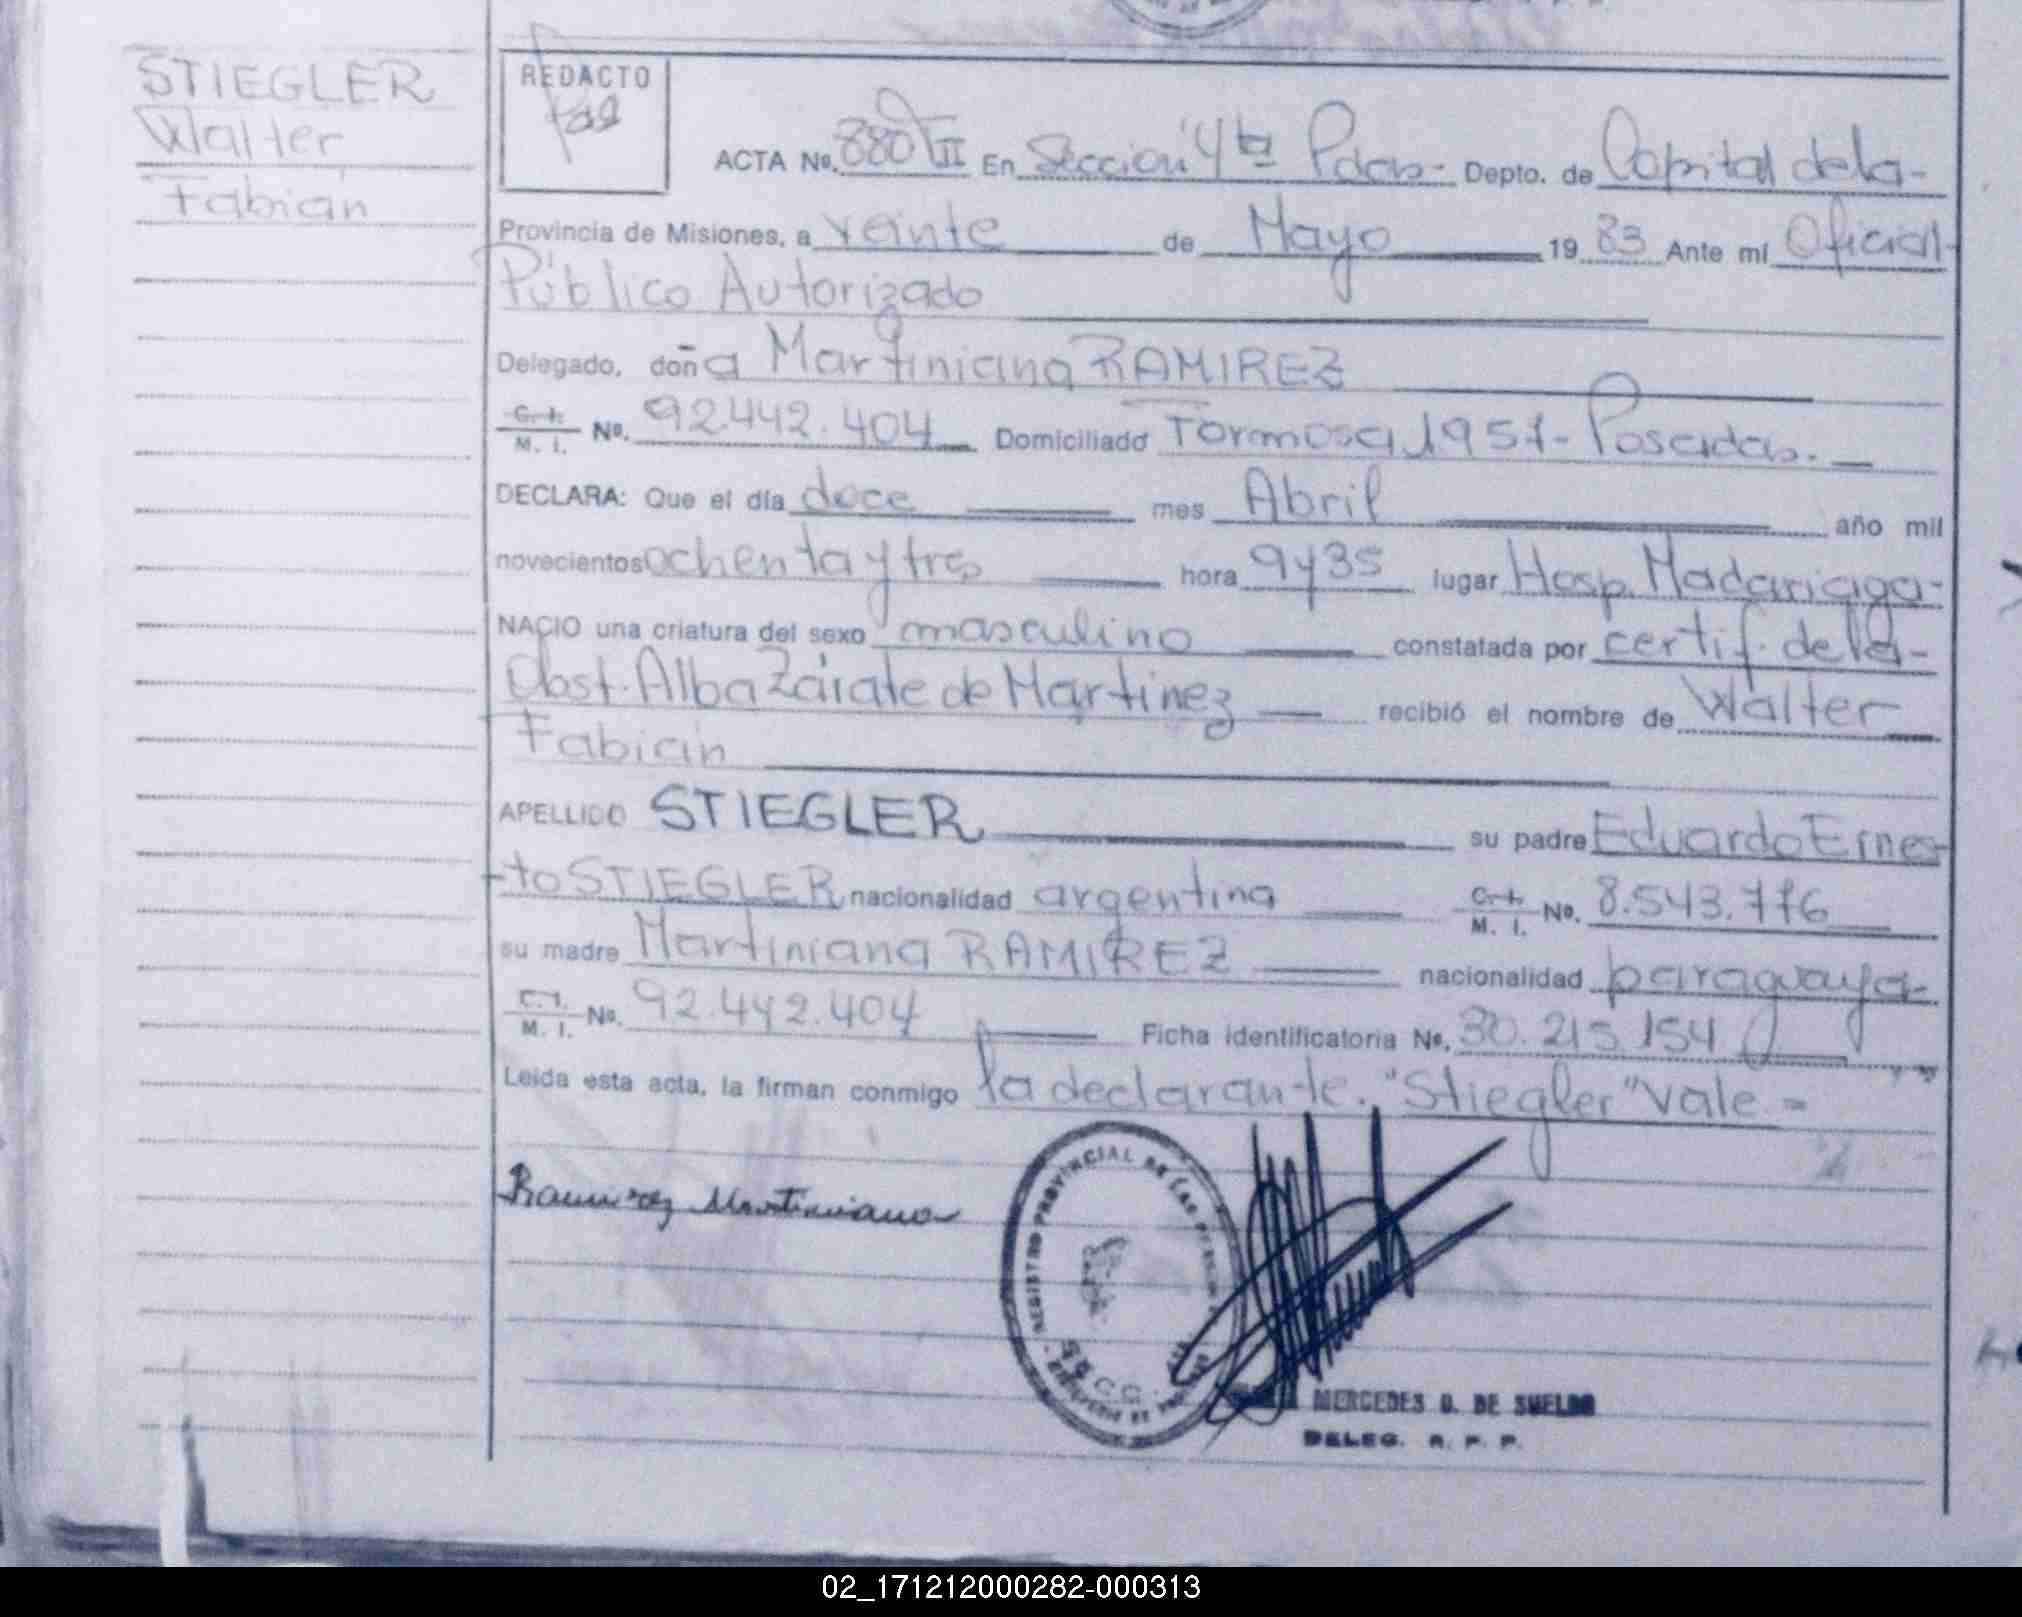 STIEGLER
Walter
Fabián
REDACTO
ACTA No. 880 TII En Sección 4ta Pdas- Depto. de Capital de la-
Provincia de Misiones, a veinte de Mayo 1983 Ante mí Oficial
Público Autorizado
Delegado, doña Martiniana RAMIREZ
C.I. M.I. No. 92.442.404 Domiciliado Formosa 1957- Posadas.
DECLARA: Que el día doce mes Abril año mil
novecientos ochenta y tres hora 9y35 lugar Hosp. Madariaga-
NACIO una criatura del sexo masculino constatada por certif. de la-
Obst. Alba Zárate de Martinez recibió el nombre de Walter
Fabián
APELLIDO STIEGLER su padre Eduardo Ernes-
-to STIEGLER nacionalidad argentina C.I. M.I. No. 8.543.776
su madre Martiniana RAMIREZ nacionalidad paraguaya-
C.I. M.I. No. 92.442.404 Ficha identificatoria No. 30.215.154
Leida esta acta, la firman conmigo la declarante. "Stiegler" Vale =
Ramirez Martiniana
REGISTRO PROVINCIAL DE LAS PERSONAS
MERCEDES O. DE SUELDO
DELEG. R. P. P.
02_171212000282-000313